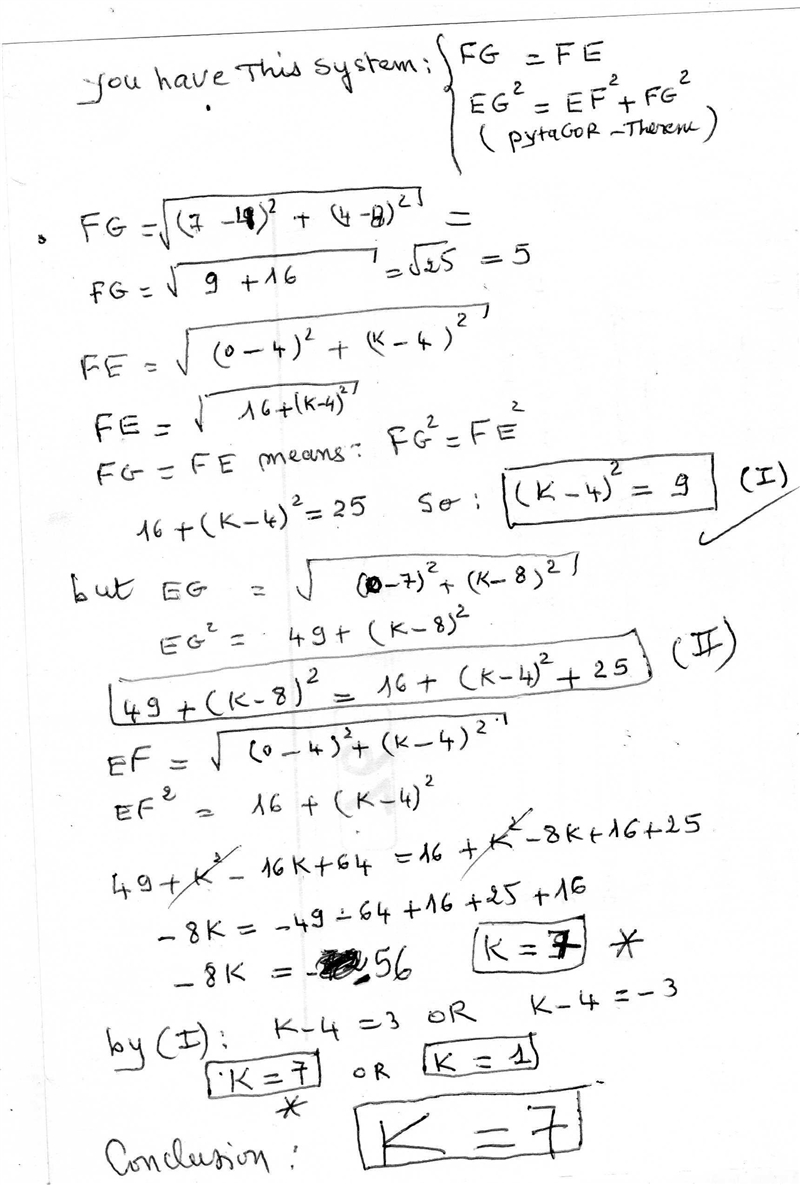 you have This system: { FG = FE
EG² = EF² + FG²
(pytaGOR - Therem)
FG = √(7 - 4)² + (4 - 8)² =
FG = √9 + 16 = √25 = 5
FE = √(0 - 4)² + (K - 4)²
FE = √16 + (K-4)²
FG = FE means: FG² = FE²
16 + (K - 4)² = 25 So: (K - 4)² = 9 (I)
but EG = √(0-7)² + (K - 8)²
EG² = 49 + (K - 8)²
49 + (K - 8)² = 16 + (K - 4)² + 25 (II)
EF = √(0 - 4)² + (K - 4)²
EF² = 16 + (K - 4)²
49 + K² - 16K + 64 = 16 + K² - 8K + 16 + 25
- 8K = - 49 - 64 + 16 + 25 + 16
- 8K = - 56 K = 7 *
by (I): K - 4 = 3 OR K - 4 = - 3
K = 7 OR K = 1
*
Conclusion: K = 7